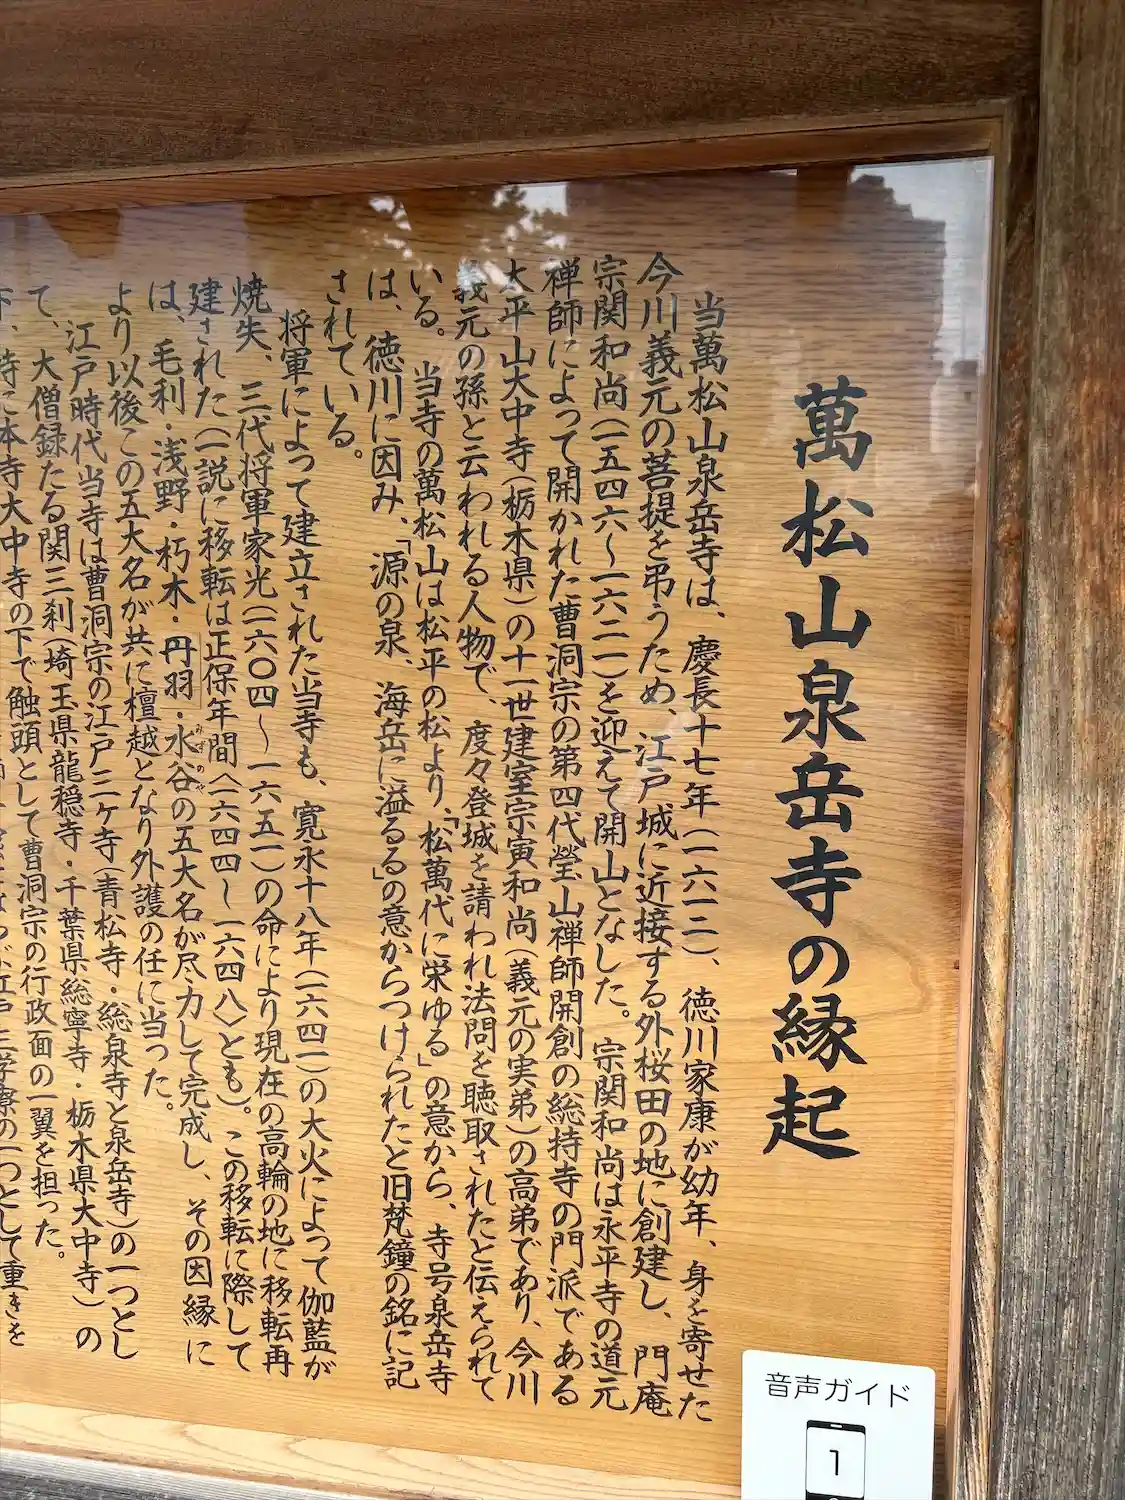 萬松山泉岳寺の縁起
当萬松山泉岳寺は、慶長十七年(一六一二)、徳川家康が幼年、身を寄せた
今川義元の菩提を弔うため、江戸城に近接する外桜田の地に創建し、門庵
宗関和尚(一五四六〜一六二一)を迎えて開山となした。宗関和尚は永平寺の道元
禅師によって開かれた曹洞宗の第四代瑩山禅師開創の総持寺の門派である
太平山大中寺(栃木県)の十一世建室宗寅和尚(義元の実弟)の高弟であり、今川
義元の孫と云われる人物で、度々登城を請われ法問を聴取されたと伝えられて
いる。当寺の萬松山は松平の松より、「松萬代に栄ゆる」の意から、寺号泉岳寺
は、徳川に因み、「源の泉、海岳に溢るる」の意からつけられたと旧梵鐘の銘に記
されている。
将軍によって建立された当寺も、寛永十八年(一六四一)の大火によって伽藍が
焼失、三代将軍家光(一六〇四〜一六五一)の命により現在の高輪の地に移転再
建された(一説に移転は正保年間〈一六四四〜一六四八〉とも)。この移転に際して
は、毛利・浅野・朽木・丹羽・水谷の五大名が尽力して完成し、その因縁に
みずのや
より以後この五大名が共に檀越となり外護の任に当った。
江戸時代当寺は曹洞宗の江戸三ヶ寺(青松寺・総泉寺と泉岳寺)の一つとし
て、大僧録たる関三刹(埼玉県龍穏寺・千葉県総寧寺・栃木県大中寺)の
下、特に本寺大中寺の下で触頭として曹洞宗の行政面の一翼を担った。
江戸三学寮の一つとして重きを
音声ガイド
1